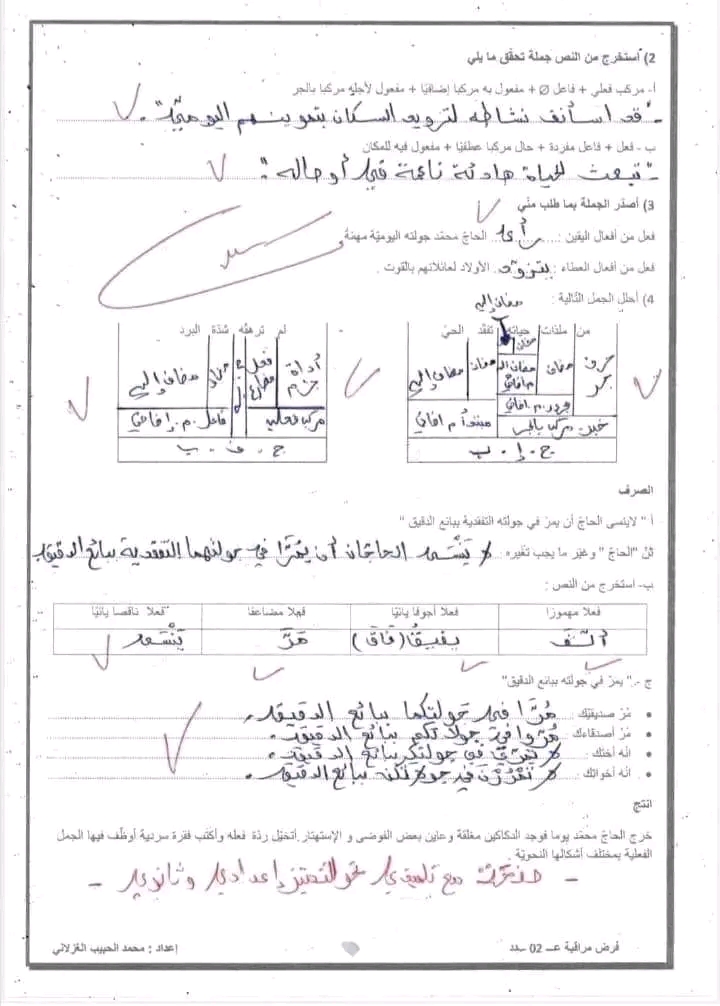 2) أستخرج من النص جملة تحقّق ما يلي
أ- مركب فعلي + فاعل Ø + مفعول به مركبا إضافيّا + مفعول لأجله مركبا بالجر
- "قد استأنف نشاطه لتزويد السكان بتموينهم اليوميّ".
ب - فعل + فاعل مفردة + حال مركبا عطفيّا + مفعول فيه للمكان
- "تبعث الحياة هادئة ناعمة في أوحاله".
3) أصدّر الجملة بما طلب منّي
فعل من أفعال اليقين : رأى الحاجّ محمّد جولته اليوميّة مهمّة
فعل من أفعال العطاء : يتزوّد الأولاد لعائلاتهم بالقوت .
4) أحلل الجمل التّالية :
مضاف إليه
من ملذات حياته تفقّد الحيّ
حرف جر
مضاف
مضاف إليه
مجرور م. إضافي
خبر مركب بالجر
مبتدأ م إضافي
ج . إ . ب
لم ترهبه شدّة البرد
أداة جزم
فعل مضارع
مضاف
مضاف إليه
مركب فعلي
فاعل م. إضافي
ج . ف . ب
الصرف
أ " لاينسى الحاجّ أن يمرّ في جولته التفقدية ببائع الدقيق "
ثنّ "الحاجّ " وغيّر ما يجب تغيّره : لا يَنْسَى الحاجّان أن يمُرّا في جولتهما التفقدية ببائع الدقيق.
ب- استخرج من النص :
فعلا مهموزا فعلا أجوفا يائيّا فعلا مضاعفا فعلا ناقصا يائيّا
يفيقُ (فَاقَ) مَرَّ يَنْسَى
ج - " يمرّ في جولته ببائع الدقيق"
• مُرْ صديقيْك : مُرَّا في جَولتكما ببائع الدقيق.
• مُرْ أصدقاءك : مُرّوا في جولاتكم ببائع الدقيقِ.
• انْه أختك : لا تمُرّي في جولتكِ ببائع الدقيق.
• انْه أخواتك : لا تَمْرُرْنَ في جولاتكنّ ببائع الدقيق.
انتج
خرج الحاجّ محمّد يوما فوجد الدكاكين مغلقة وعاين بعض الفوضى و الإستهتار.أتخيّل ردّة فعله وأكتب فقرة سردية أوظّف فيها الجمل
الفعلية بمختلف أشكالها النحويّة
- مع تلميذي نحو التميّز إعدادي وثانوي -
فرض مراقبة عــ 02 ــدد
إعداد : محمد الحبيب الغزلاني